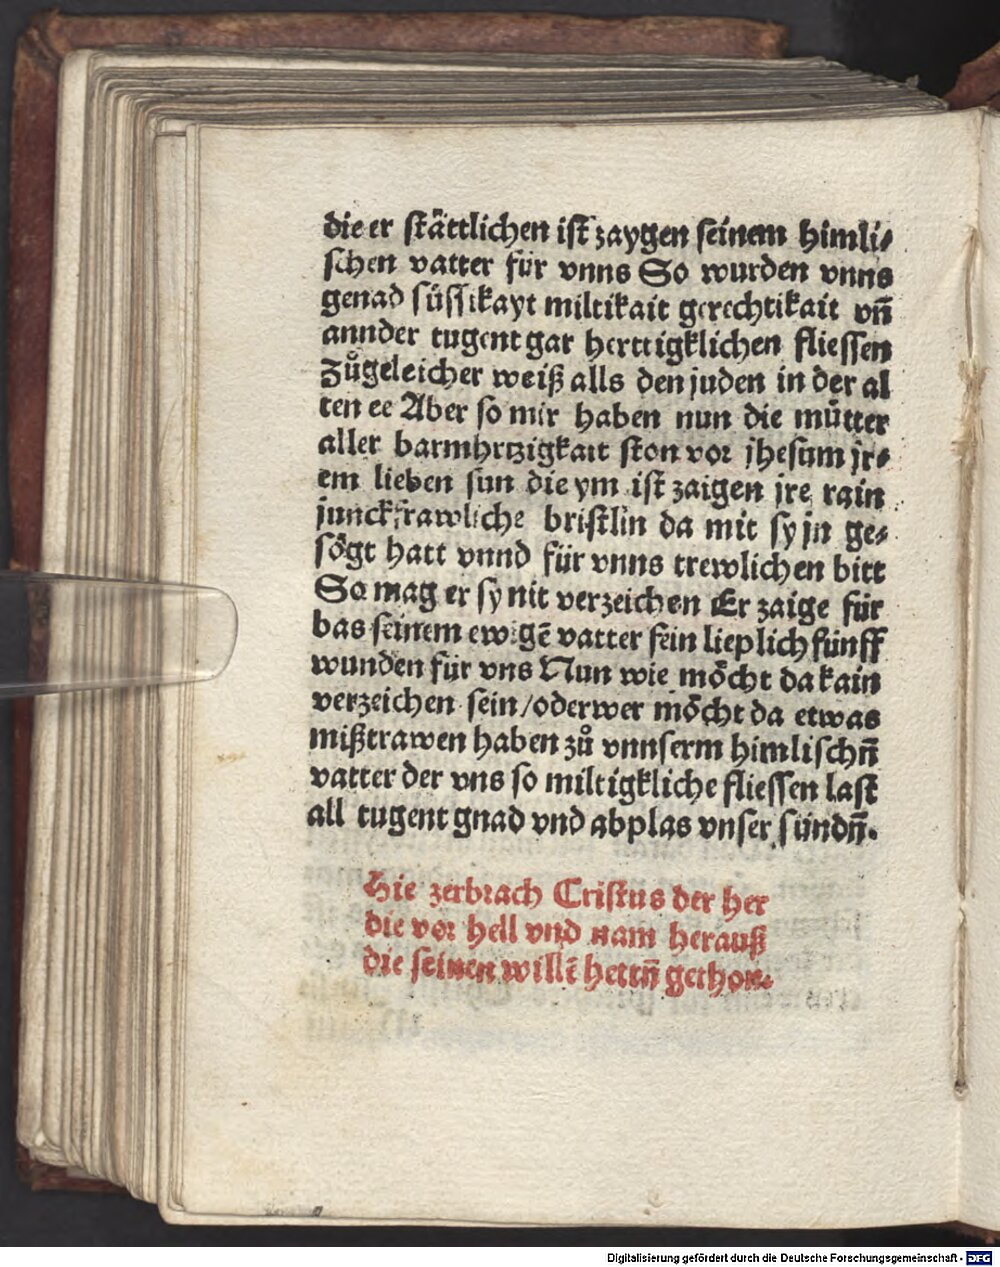 die er stättlichen ist zaygen seinem himli⸗
schen vatter für vnns So wurden vnns
genad süssikayt miltikait gerechtikait vñ
annder tugent gar herttigklichen fliessen
Zůgeleicher weiß alls den juden in der al
ten ee Aber so mir haben nun die mütter
aller barmhrtzigkait ston vor jhesum jr⸗
em lieben sun die ym ist zaigen jre rain
junckfrawliche bristlin da mit sy jn ge⸗
sögt hatt vnnd für vnns trewlichen bitt
So mag er sy nit verzeichen Er zaige für
bas seinem ewigẽ vatter sein lieplich fünff
wunden für vns Nun wie möcht da kain
verzeichen sein/oder wer möcht da etwas
mißtrawen haben zů vnnserm himlischñ
vatter der vns so miltigkliche fliessen last
all tugent gnad vnd abplas vnser sündñ.
Hie zerbrach Cristus der her
die vor hell vnd nam herauß
die seinen willẽ hettñ gethon.
Digitalisierung gefördert durch die Deutsche Forschungsgemeinschaft - DFG